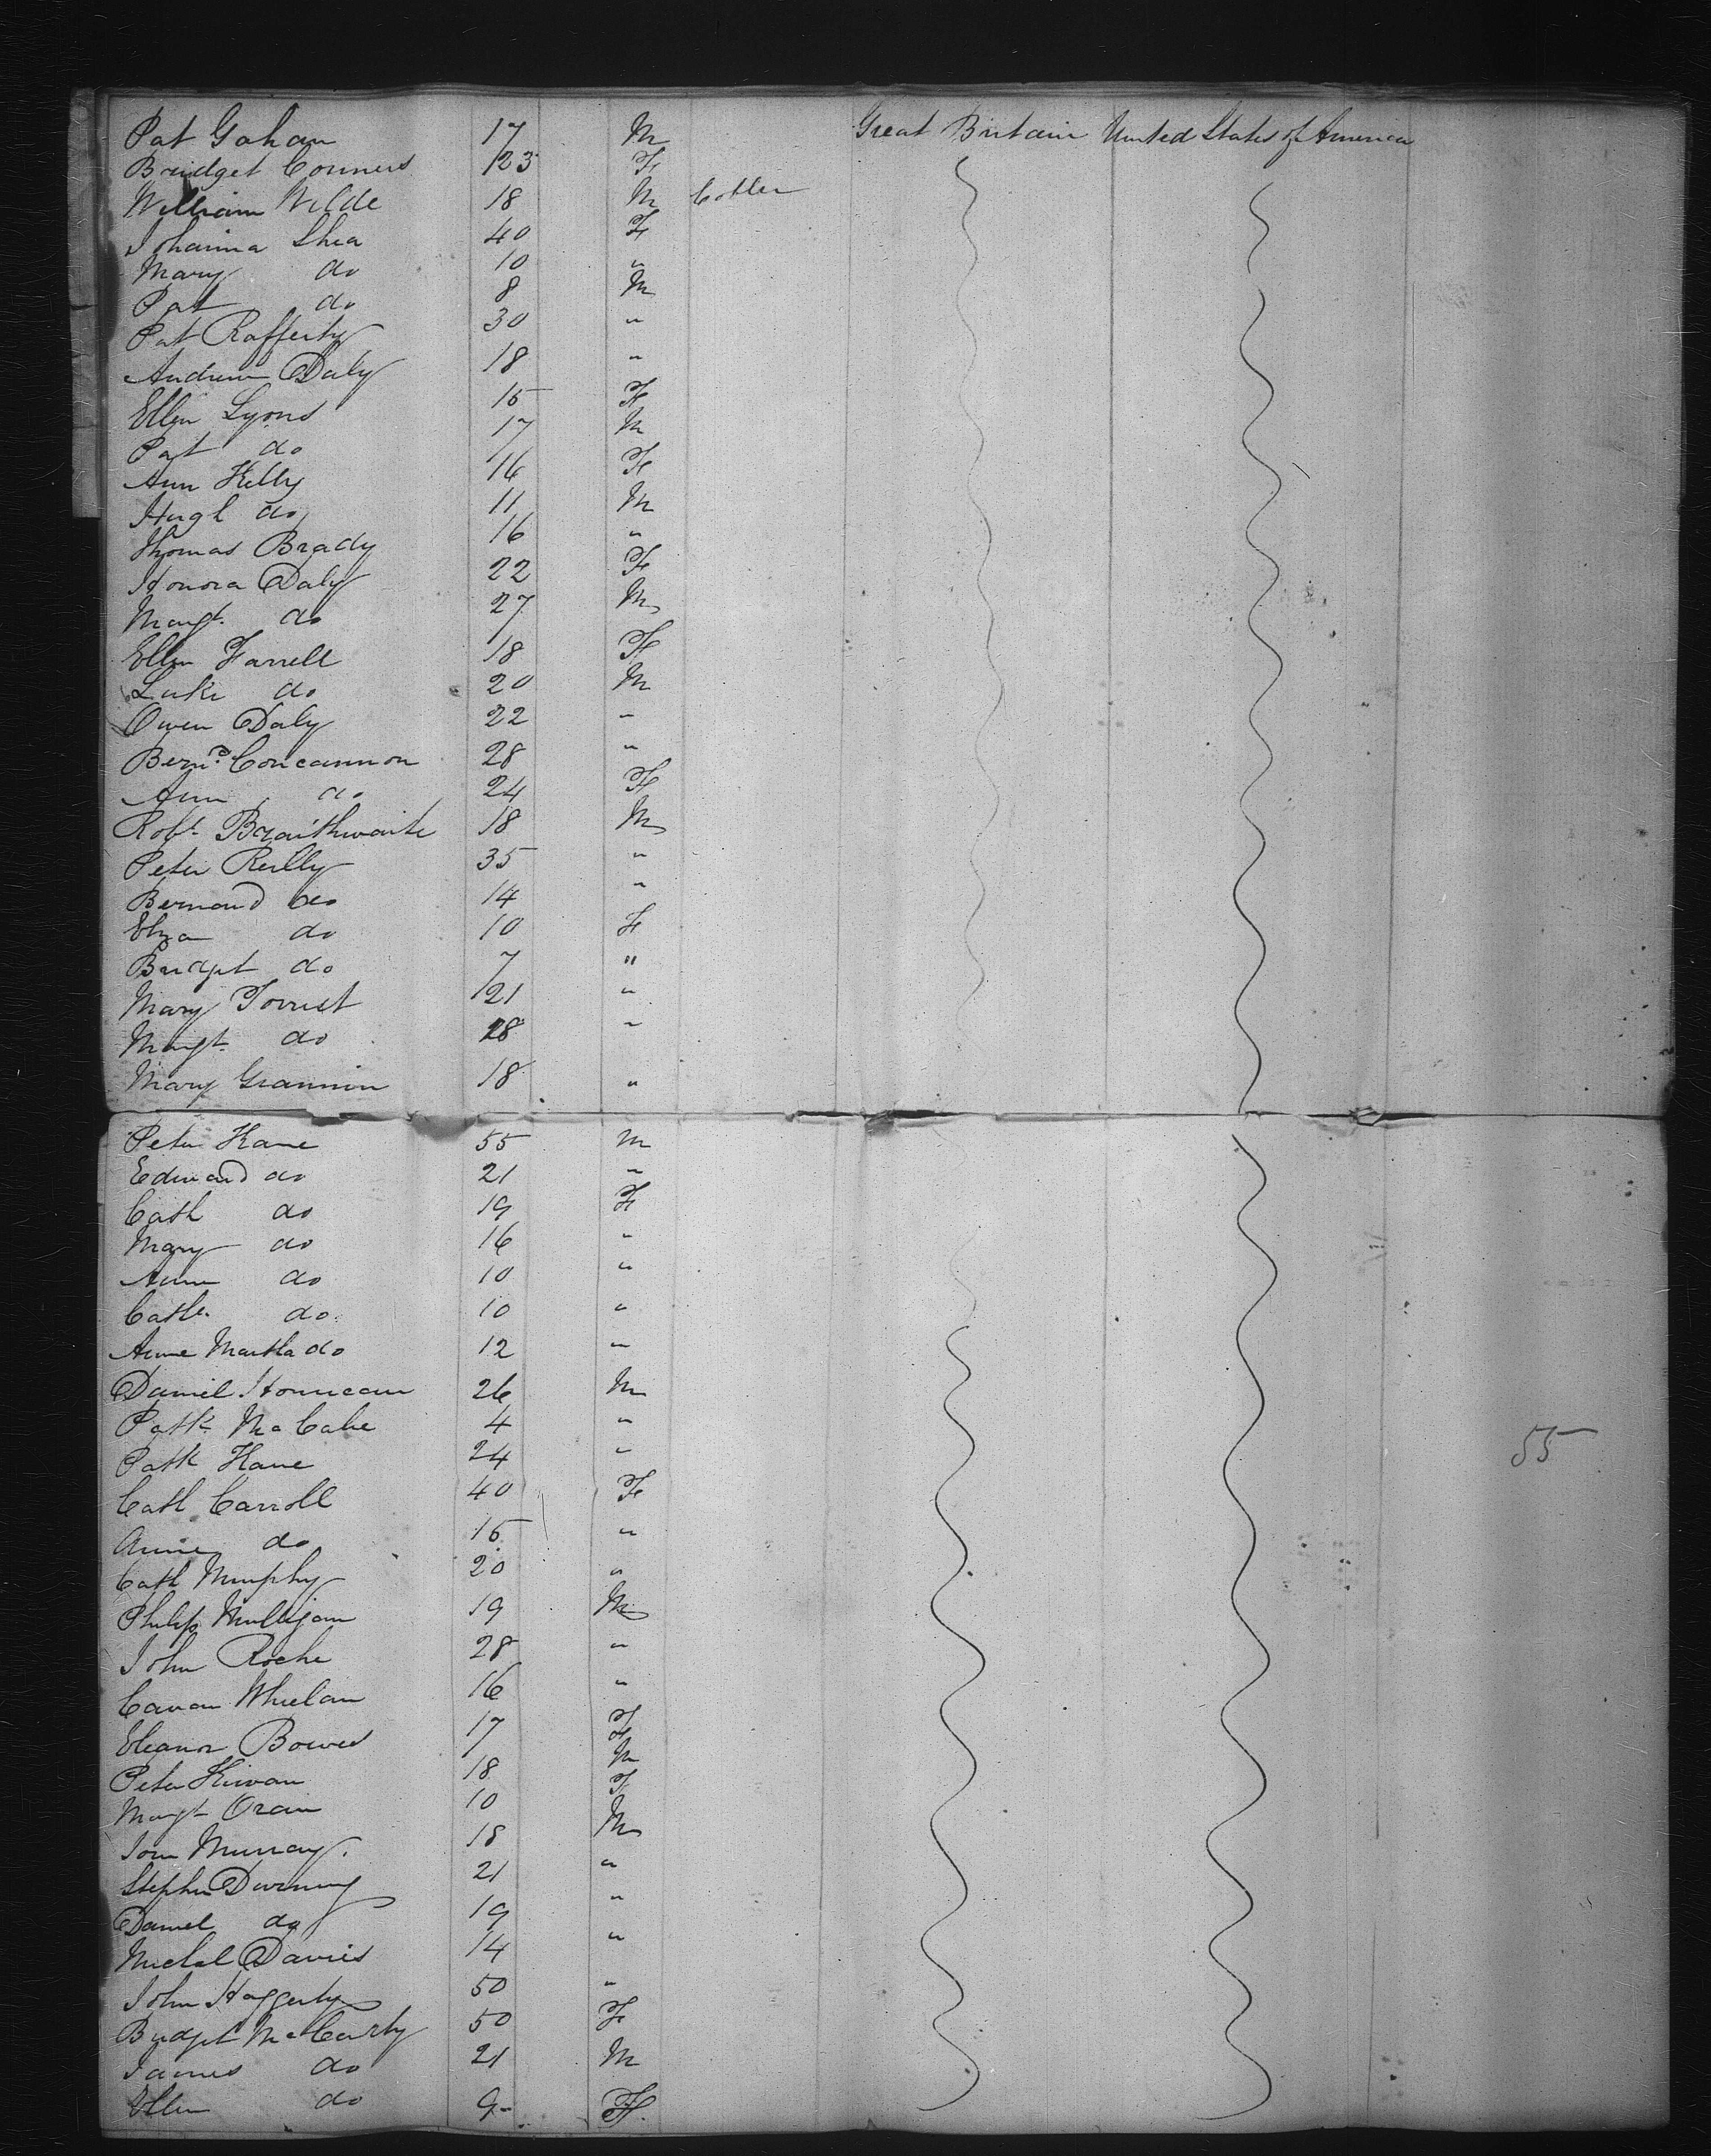 Pat Gahan 17 M Great Britain United States of America
Bridget Conners 23 F
William Wilde 18 M
Johanna Shea 40 F
Mary do 10 "
Pat do 8 M
Pat Rafferty 30 "
Andrew Daly 18 "
Ellen Lyons 15 F
Pat do 17 M
Ann Kelly 16 F
Hugh do 11 M
Thomas Brady 16 "
Honora Daly 22 F
Margt. do 27 M
Ellen Farrell 18 F
Luke do 20 M
Owen Daly 22 "
Bernd. Concannon 28 "
Ann do 24 F
Robt. Braithwaite 18 M
Peter Reilly 35 "
Bernard do 14 "
Eliza do 10 F
Bridget do 7 "
Mary Forrest 21 "
Margt. do 18 "
Mary Grannin 18 "
Peter Kane 55 M
Edward do 21 "
Cath do 19 F
Mary do 16 "
Anne do 10 "
Cath. do 10 "
Anne Martha do 12 "
Daniel 26 M
Patk. McCabe 4 "
Patk Kane 24 "
Cath Carroll 40 F
Anne do 15 "
Cath Murphy 20 "
Philip Mulligan 19 M
John Roche 28 "
Whelan 16 "
Eleanor Bowes 17 F
Peter Kirwan 18 M
Margt. Oram 10 F
Murray. 18 M
Stephen Durning 21 "
Daniel do 19 "
Michal Davies 14 "
John Haggerty 50 "
Bridget McCarty 50 F
James do 21 M
Ellen do 9 F.
55